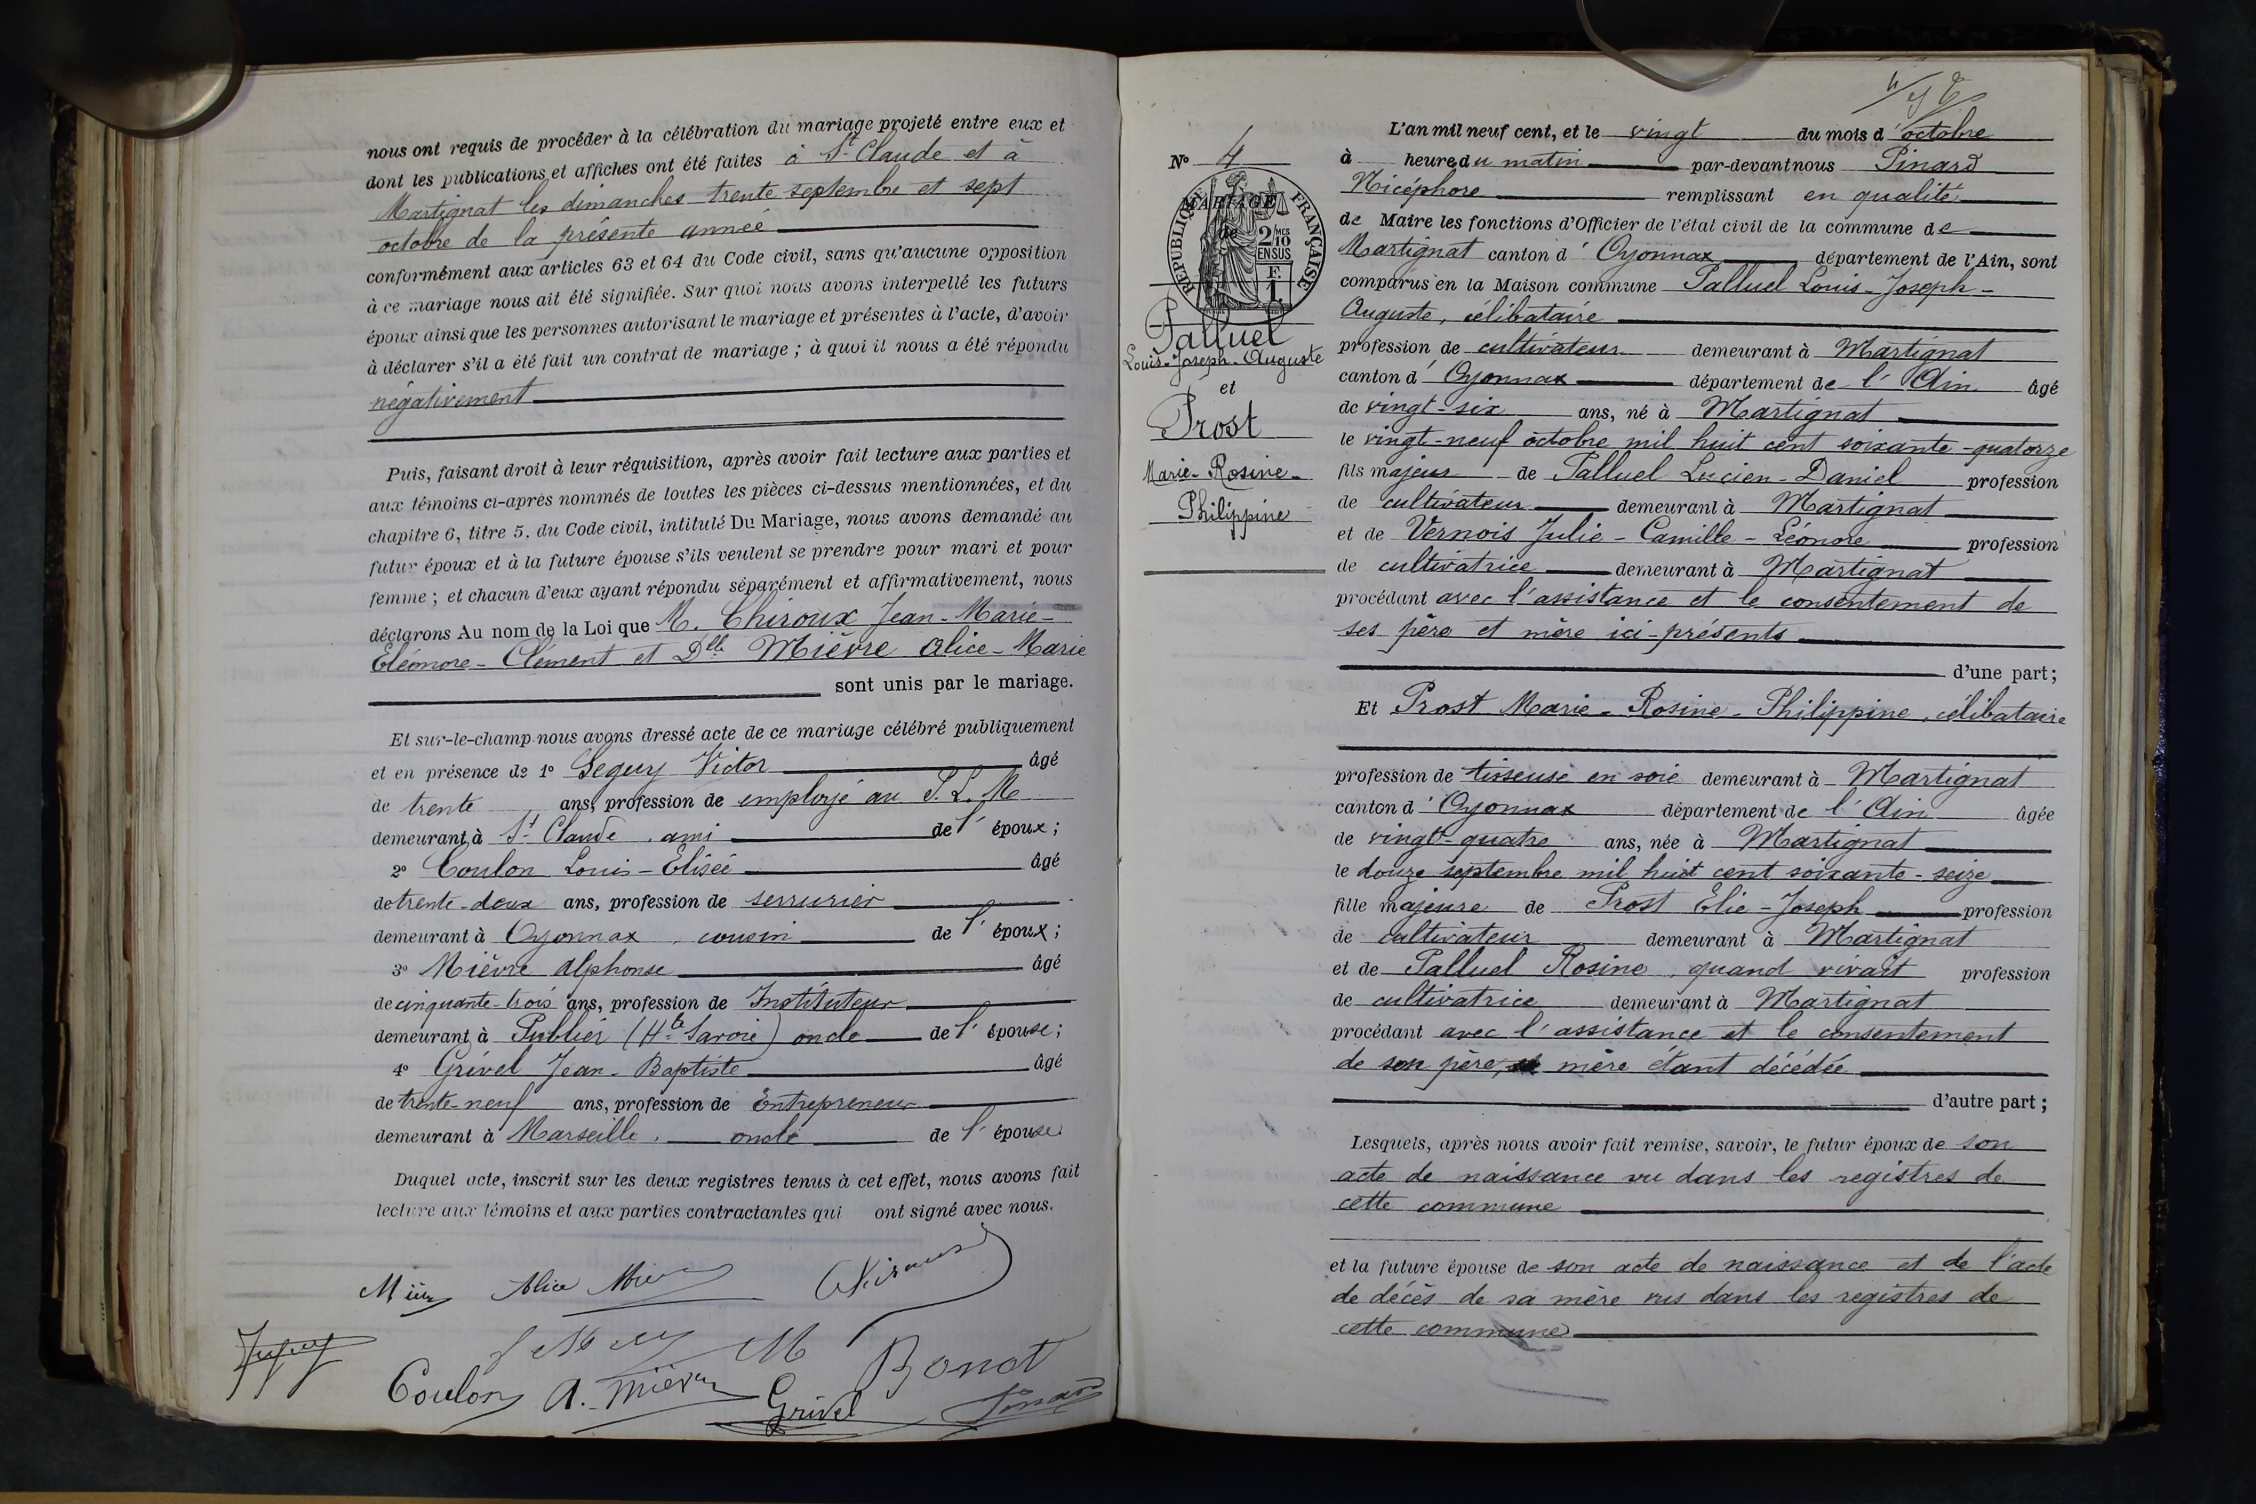 nous ont requis de procéder à la célébration du mariage projeté entre eux et
dont les publications et affiches ont été faites à St Claude et à
Martignat les dimanches trente septembre et sept
octobre de la présente année
conformément aux articles 63 et 64 du Code civil, sans qu'aucune opposition
à ce mariage nous ait été signifiée. Sur quoi nous avons interpellé les futurs
époux ainsi que les personnes autorisant le mariage et présentes à l'acte, d'avoir
à déclarer s'il a été fait un contrat de mariage ; à quoi il nous a été répondu
négativement
Puis, faisant droit à leur réquisition, après avoir fait lecture aux parties et
aux témoins ci-après nommés de toutes les pièces ci-dessus mentionnées, et du
chapitre 6, titre 5. du Code civil, intitulé Du Mariage, nous avons demandé au
futur époux et à la future épouse s'ils veulent se prendre pour mari et pour
femme ; et chacun d'eux ayant répondu séparément et affirmativement, nous
déclarons Au nom de la Loi que M. Chiroux Jean-Marie-
Eléonore-Clément et Dlle Mièvre Alice-Marie
sont unis par le mariage.
Et sur-le-champ nous avons dressé acte de ce mariage célébré publiquement
et en présence de 1° Seguy Victor âgé
de trente ans, profession de employé au P. L. M
demeurant à St Claude, ami de l'époux ;
2° Coulon Louis-Elisée âgé
de trente-deux ans, profession de serrurier
demeurant à Oyonnax, cousin de l'époux ;
3° Mièvre Alphonse âgé
de cinquante-trois ans, profession de Instituteur
demeurant à Publier (Hte Savoie) oncle de l'épouse ;
4° Grivel Jean-Baptiste âgé
de trente-neuf ans, profession de Entrepreneur
demeurant à Marseille, oncle de l'épouse
Duquel acte, inscrit sur les deux registres tenus à cet effet, nous avons fait
lecture aux témoins et aux parties contractantes qui ont signé avec nous.
Alice
Coulon A. Mièvre Grivel Bonot Pinard
N° 4
MARIAGE
de
RÉPUBLIQUE FRANÇAISE
2/10 MES
EN SUS
F.
1.
Palluel
Louis-Joseph-Auguste
et
Prost
Marie-Rosine-
Philippine
L'an mil neuf cent, et le vingt du mois d'octobre
à heure du matin par-devant nous Pinard
Nicéphore remplissant en qualité
de Maire les fonctions d'Officier de l'état civil de la commune de
Martignat canton d'Oyonnax département de l'Ain, sont
comparus en la Maison commune Palluel Louis-Joseph-
Auguste, célibataire
profession de cultivateur demeurant à Martignat
canton d'Oyonnax département de l'Ain âgé
de vingt-six ans, né à Martignat
le vingt-neuf octobre mil huit cent soixante-quatorze
fils majeur de Palluel Lucien-Daniel profession
de cultivateur demeurant à Martignat
et de Vernois Julie-Camille-Léonore profession
de cultivatrice demeurant à Martignat
procédant avec l'assistance et le consentement de
ses père et mère ici-présents
d'une part ;
Et Prost Marie-Rosine-Philippine, célibataire
profession de tisseuse en soie demeurant à Martignat
canton d'Oyonnax département de l'Ain âgée
de vingt-quatre ans, née à Martignat
le douze septembre mil huit cent soixante-seize
fille majeure de Prost Elie-Joseph profession
de cultivateur demeurant à Martignat
et de Palluel Rosine, quand vivait profession
de cultivatrice demeurant à Martignat
procédant avec l'assistance et le consentement
de son père, sa mère étant décédée
d'autre part ;
Lesquels, après nous avoir fait remise, savoir, le futur époux de son
acte de naissance vu dans les registres de
cette commune
et la future épouse de son acte de naissance et de l'acte
de décès de sa mère vus dans les registres de
cette commune